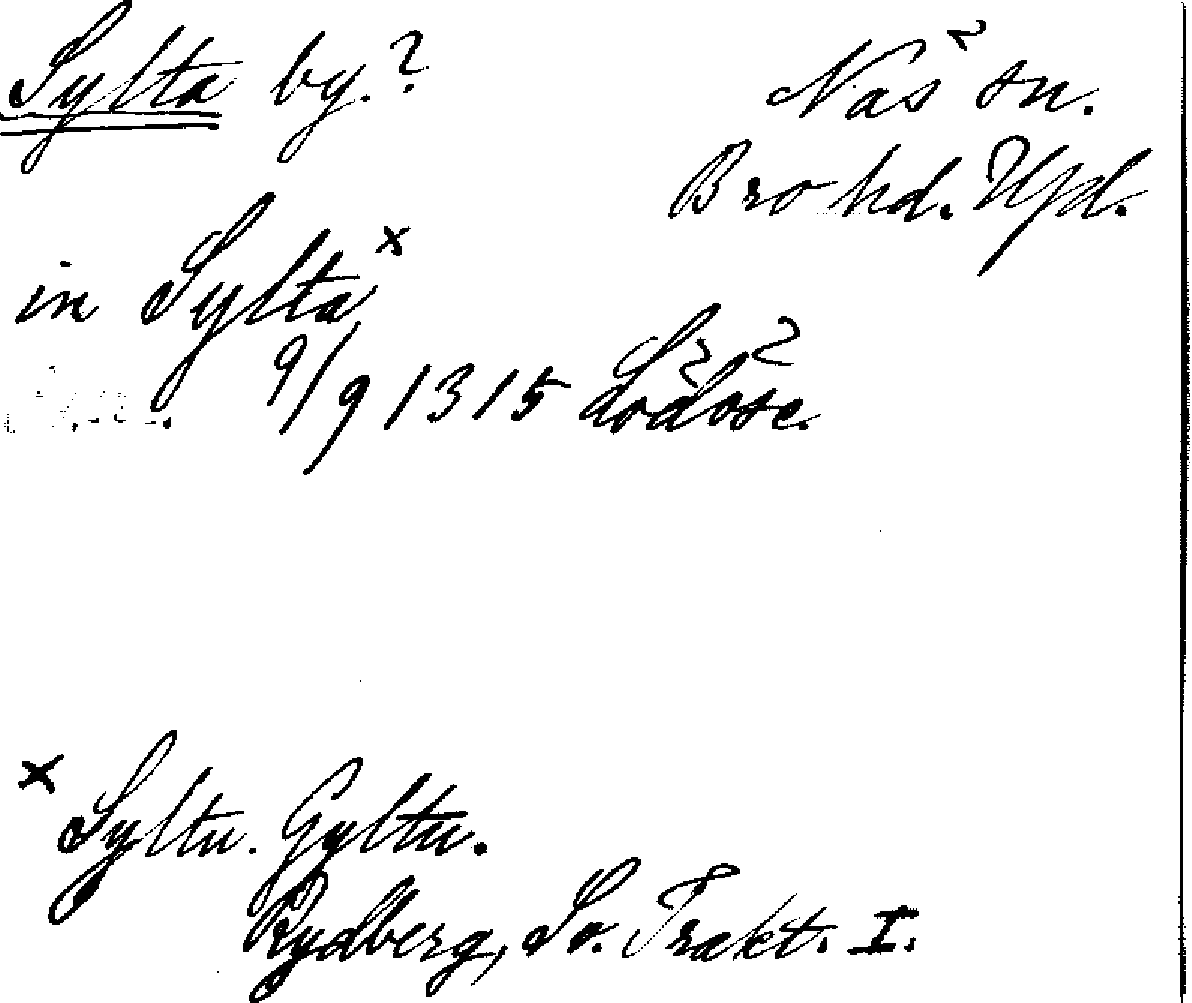 Sylta by.?
Näs sn.
Bro hd. Upl.
in Sylta x
9/9 1315 Lödöse.
x Syltu. Gyltu.
Rydberg, Sv. Trakt. I.